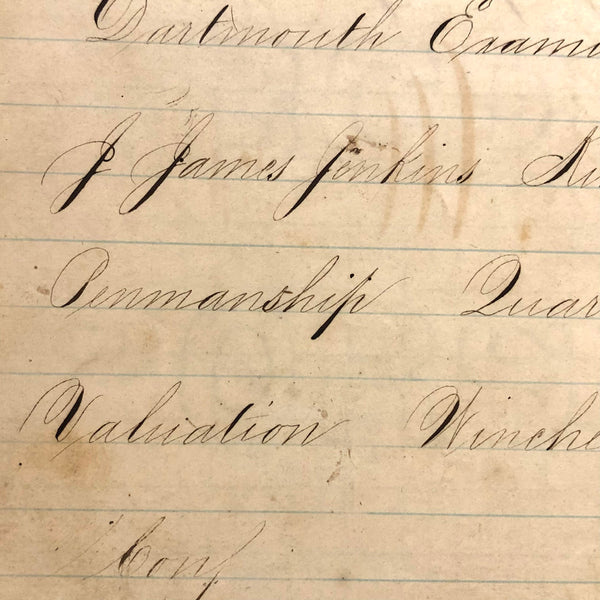 Dartmouth Exami
J James Jenkins
Penmanship Quar
Valuation Winche
Conf